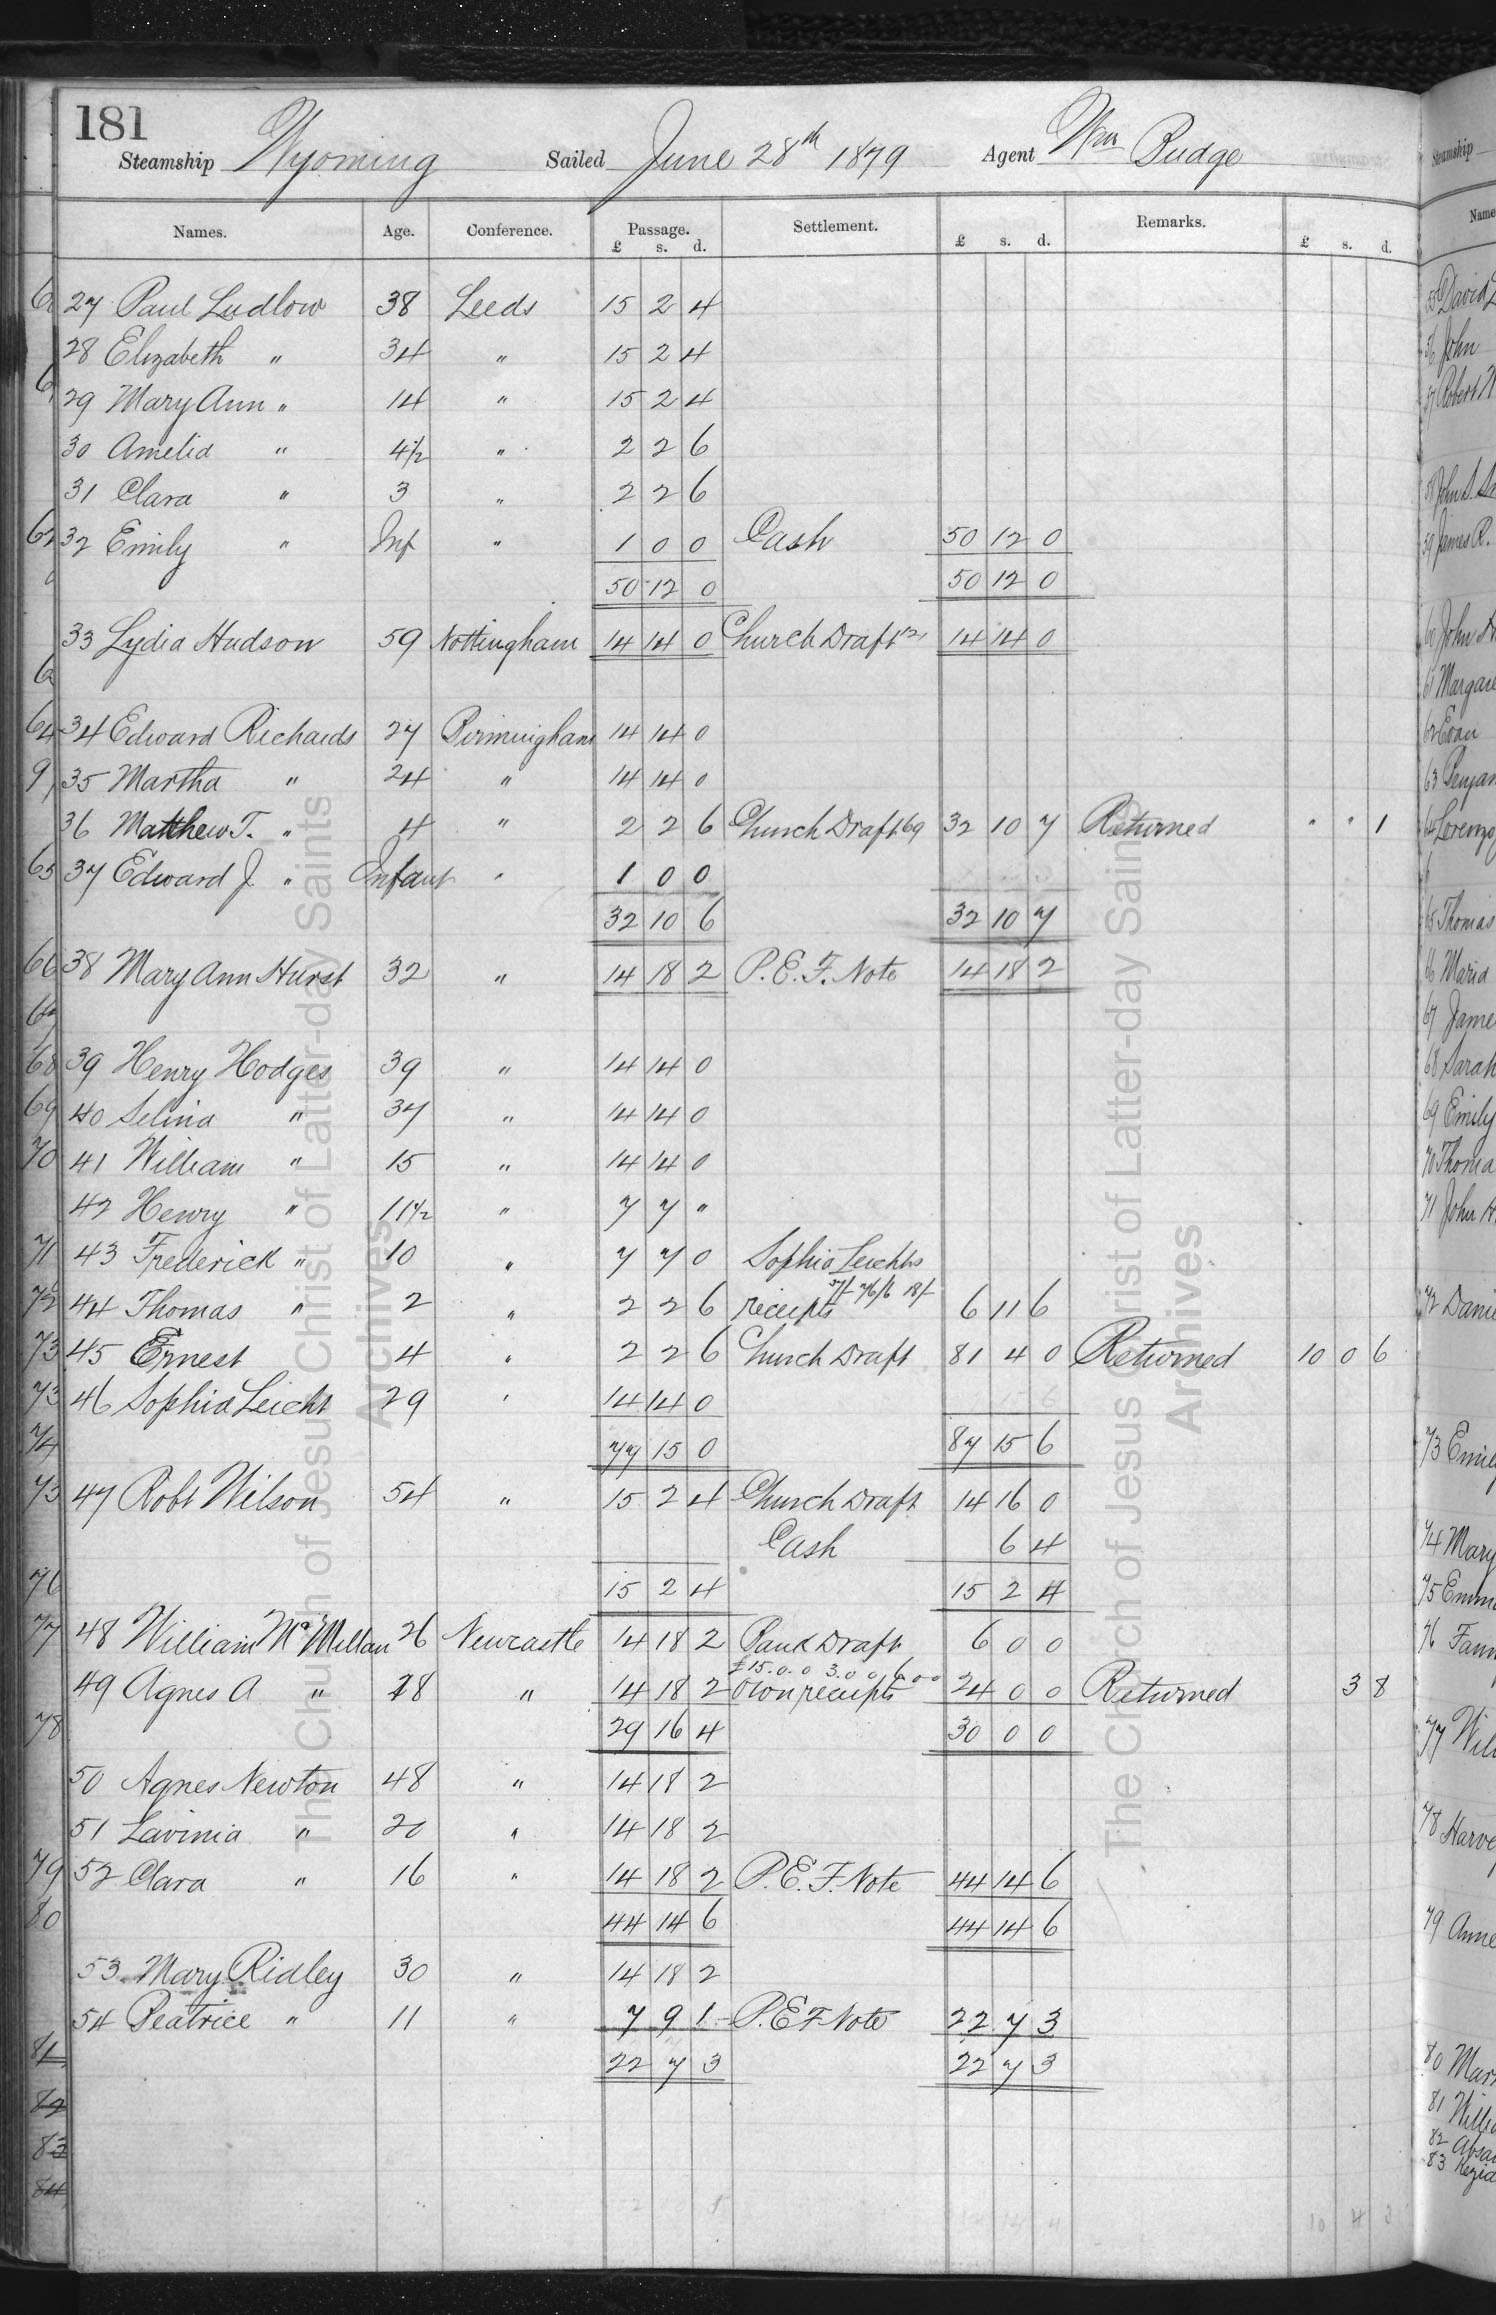 181
Steamship Wyoming Sailed June 28th 1879 Agent Wm Budge
Names. Age. Conference. Passage. Settlement. Remarks.
£ s. d. £ s. d. £ s. d.
27 Paul Ludlow 38 Leeds 15 2 4
28 Elizabeth " 34 " 15 2 4
29 Mary Ann " 14 " 15 2 4
30 Amelia " 4½ " 2 2 6
31 Clara " 3 " 2 2 6
32 Emily " Inf " 1 0 0 Cash 50 12 0
50 12 0 50 12 0
33 Lydia Hudson 59 Nottingham 14 14 0 Church Draft 14 14 0
34 Edward Richards 27 Birmingham 14 14 0
35 Martha " 24 " 14 14 0
36 Matthew T. " 4 " 2 2 6 Church Draft 69 32 10 7 Returned " " 1
37 Edward J. " Infant " 1 0 0
32 10 6 32 10 7
38 Mary Ann Hurst 32 " 14 18 2 P.E.F. Note 14 18 2
39 Henry Hodges 39 " 14 14 0
40 Selina " 37 " 14 14 0
41 William " 15 " 14 14 0
42 Henry " 11½ " 7 7 "
43 Frederick " 10 " 7 7 0 Sophia Leichts
44 Thomas " 2 " 2 2 6 receipts 37/- 76/6 18/- 6 11 6
45 Ernest 4 " 2 2 6 Church Draft 81 4 0 Returned 10 0 6
46 Sophia Leicht 29 " 14 14 0
77 15 0 87 15 6
47 Robt Wilson 54 " 15 2 4 Church Draft 14 16 0
Cash 6 4
15 2 4 15 2 4
48 William McMillan 26 Newcastle 14 18 2 Bank Draft 6 0 0
£15.0.0 3.0.0 6.0.0
49 Agnes A " 28 " 14 18 2 Own receipts 24 0 0 Returned 3 8
29 16 4 30 0 0
50 Agnes Newton 48 " 14 18 2
51 Lavinia " 20 " 14 18 2
52 Clara " 16 " 14 18 2 P.E.F. Note 44 14 6
44 14 6 44 14 6
53 Mary Ridley 30 " 14 18 2
54 Beatrice " 11 " 7 9 1 P.E F Note 22 7 3
22 7 3 22 7 3
The Church of Jesus Christ of Latter-day Saints
Archives
The Church of Jesus Christ of Latter-day Saints
Archives